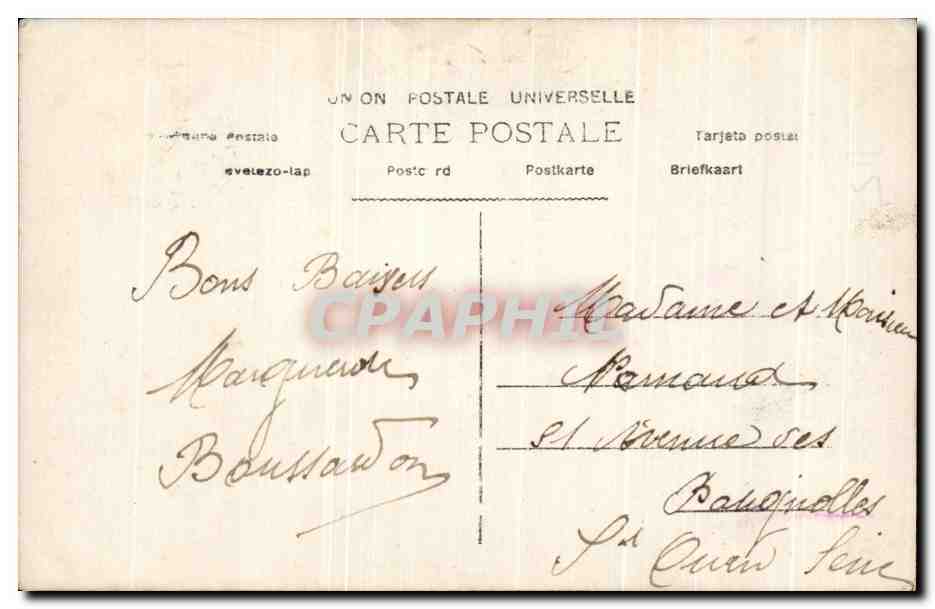 UNION POSTALE UNIVERSELLE
CARTE POSTALE
Postale Tarjeta postal
evelezo-lap Postc rd Postkarte Briefkaart
Bons Baisers
Marguerite
Boussardon
Madame et Monsieur
51 Avenue des
Batignolles
St Ouen Seine
CPAPHIL